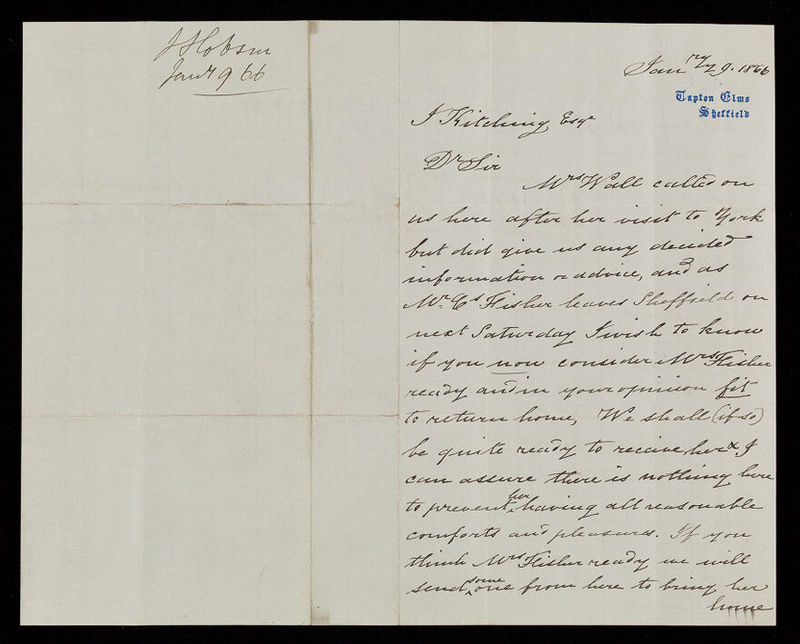 J Hobson
Jany 9 66
Jany 9. 1866
Tapton Elms
Sheffield
J Kitching Esqe
Dr Sir
Mrs Wall called on
us here after her visit to York
but did give us any decided
information or advice, and as
Mr Cs Fisher leaves Sheffield on
next Saturday I wish to know
if you now consider Mrs Fisher
ready and in your opinion fit
to return home, We shall (if so)
be quite ready to receive her & I
can assure there is nothing here
to prevent her having all reasonable
comforts and pleasures. If you
think Mrs Fisher ready we will
send some one from here to bring her
home